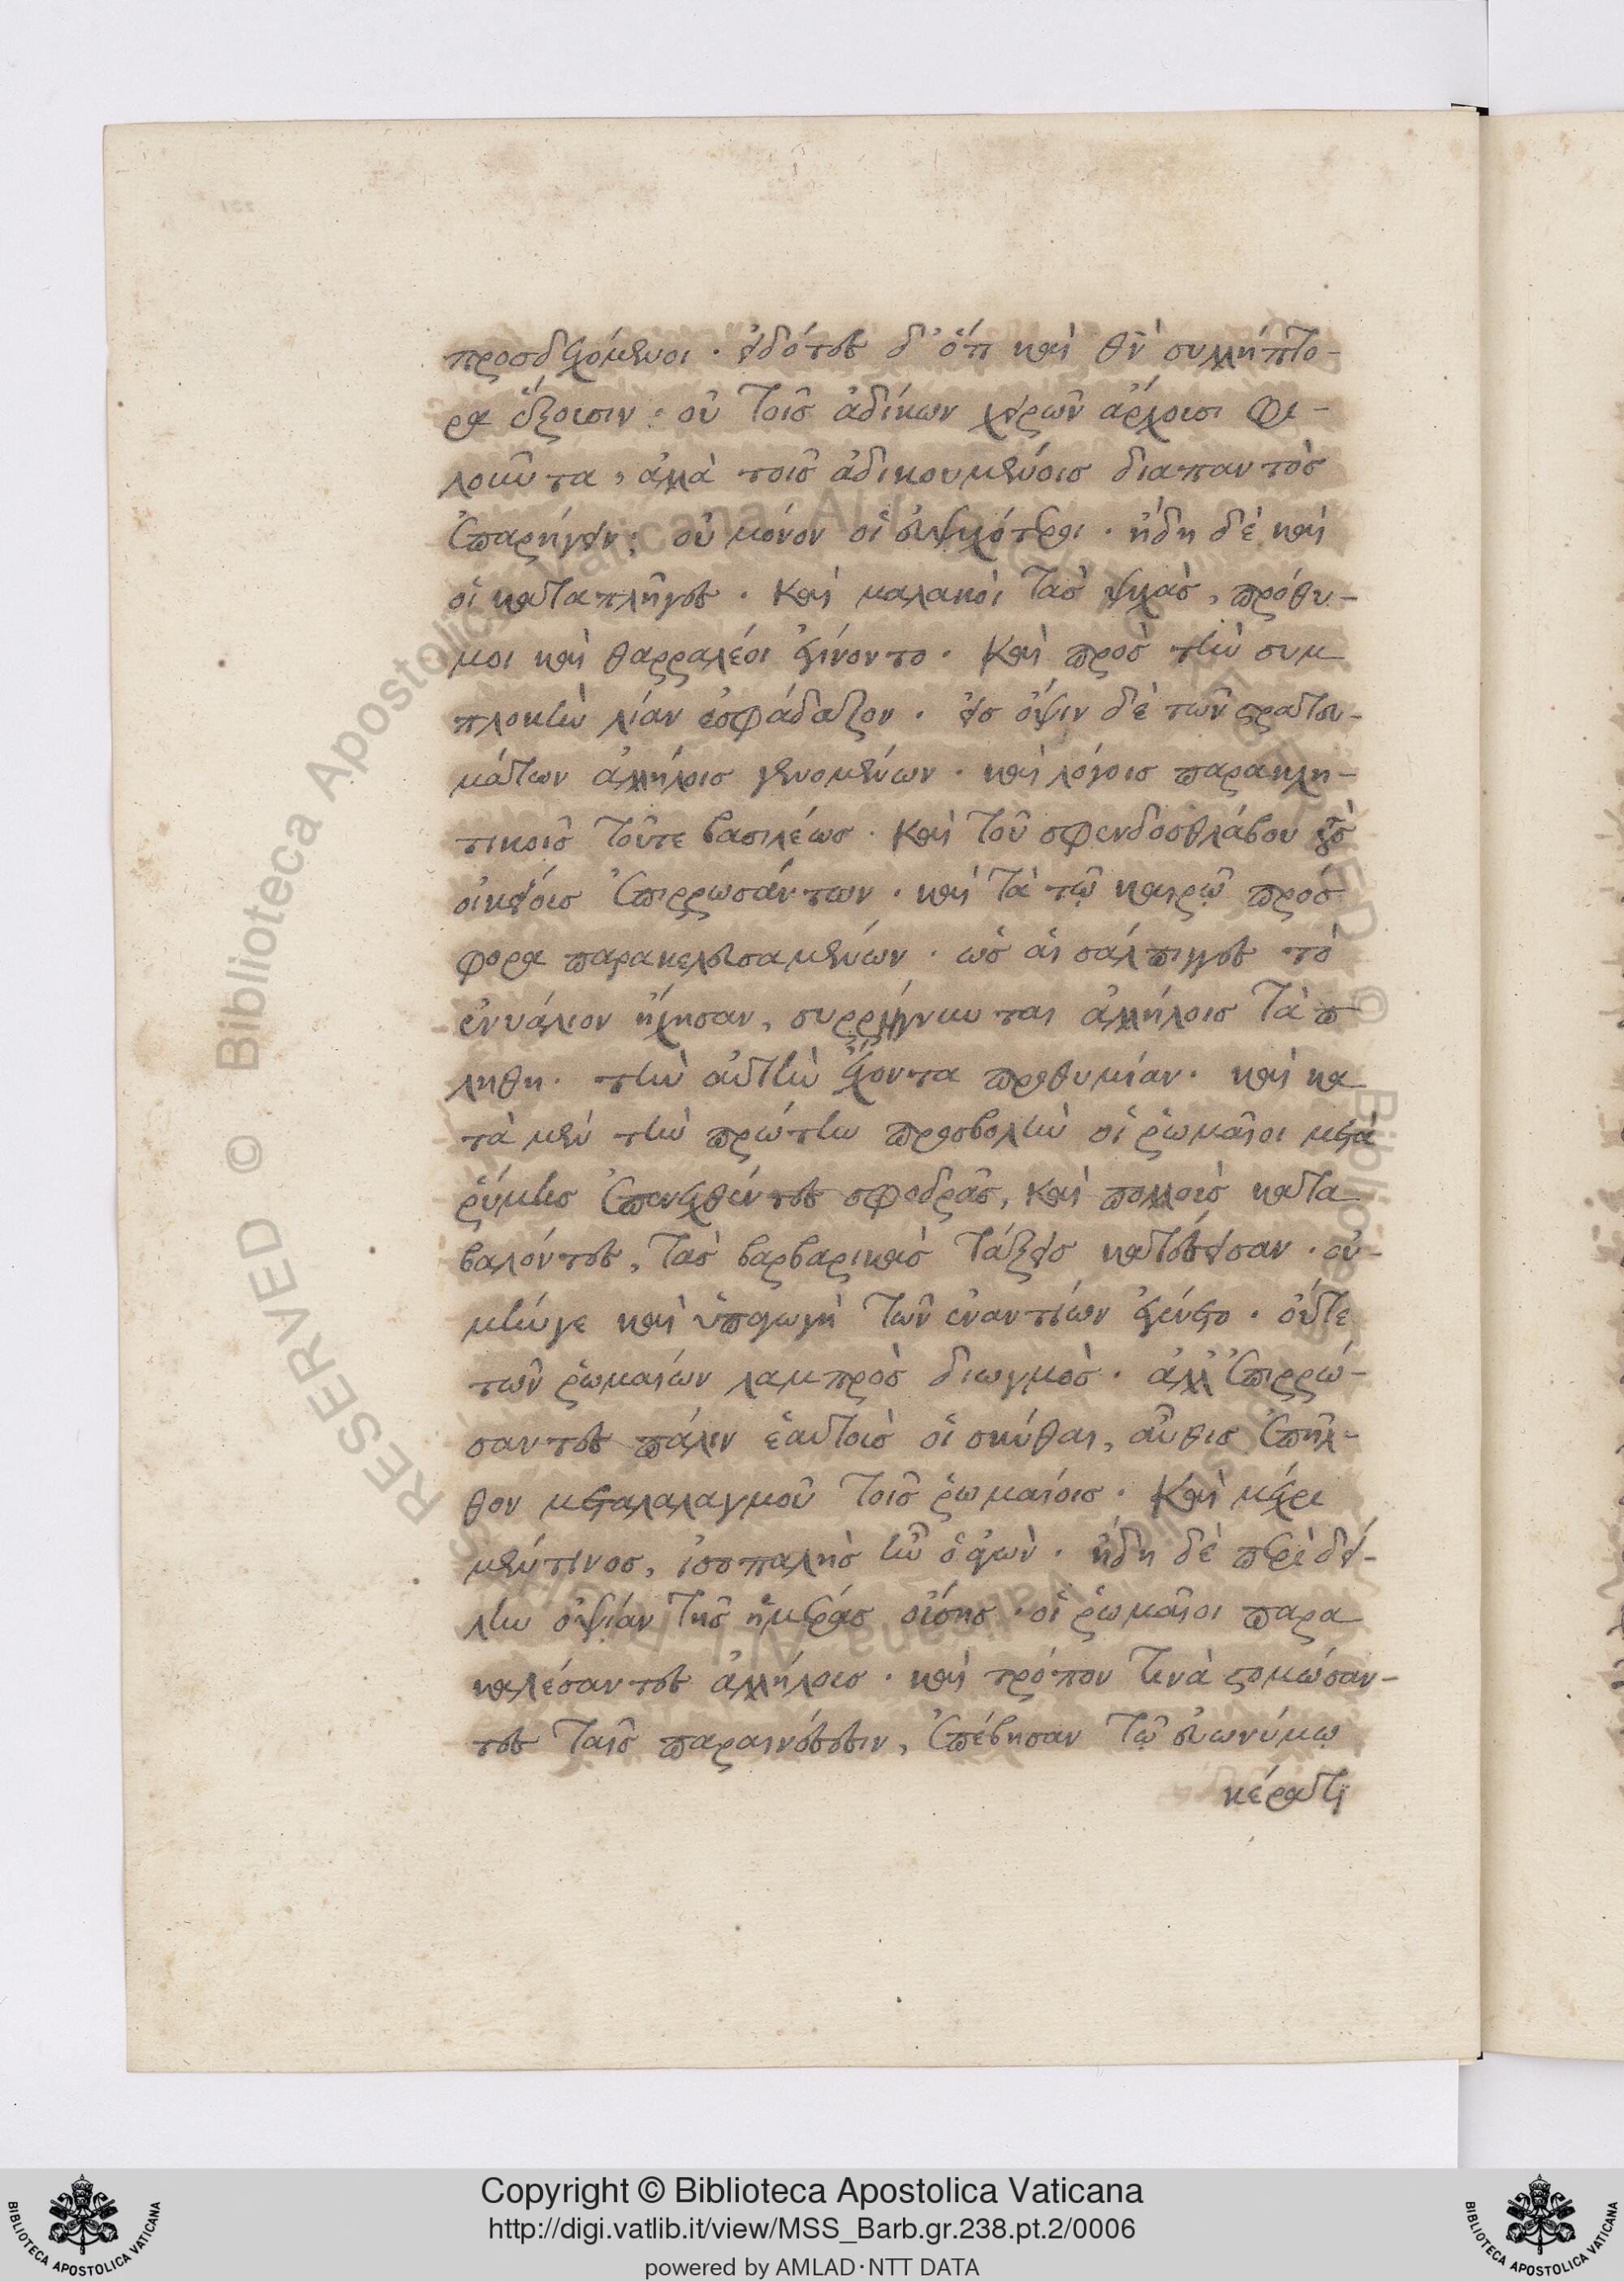 προσδεχόμενοι . εἰδότες δ' ὅτι καὶ θν̀ συλλήπτο-
ρα ἕξουσιν . οὐ τοῖς ἀδίκων χειρῶν ἄρχουσι φι-
λοῦντα , ἀλλὰ τοῖς ἀδικουμένοις διαπαντὸς
ἐπαρήγειν ; οὐ μόνον οἱ εὐψυχότεροι . ἤδη δὲ καὶ
οἱ καταπλῆγες . Καὶ μαλακοὶ τὰς ψυχὰς , πρόθυ-
μοι καὶ θαρραλέοι ἐγίνοντο . Καὶ πρὸς τὴν συμ
πλοκὴν λίαν ἐσφάδαζον . εἰς ὄψιν δὲ τῶν στρατευ-
μάτων ἀλλήλοις γενομένων . καὶ λόγοις παρακλη-
τικοῖς τοῦτε βασιλέως . Καὶ τοῦ σφενδοσθλάβου τοὺς
οἰκείους ἐπιρρωσάντων . καὶ τὰ τῷ καιρῷ πρόσ
φορα παρακελευσαμένων . ὡς αἱ σάλπιγγες τὸ
ἐνυάλιον ἤχησαν , συρρήγνυνται ἀλλήλοις τὰ π
λήθη . τὴν αὐτὴν ἔχοντα προθυμίαν . καὶ κα
τὰ μὲν τὴν πρώτην προσβολὴν οἱ ῥωμαῖοι μετὰ
ῥύμης ἐπενεχθέντες σφοδρᾶς , καὶ πολλοὺς κατα
βαλόντες , τὰς βαρβαρικὰς τάξεις κατέσεισαν . οὐ-
μήνγε καὶ ὑπαγωγὴ τῶν ἐναντίων ἐγένετο . οὔτε
τῶν ῥωμαίων λαμπρὸς διωγμὸς . ἀλλ' ἐπιρρώ-
σαντες πάλιν ἑαυτοὺς οἱ σκύθαι , αὖθις ἐπῆλ-
θον μεταλαλαγμοῦ τοῖς ῥωμαίοις . Καὶ μέχρι
μέντινος , ἰσοπαλὴς ἦν ὁ ἀγὼν . ἤδη δὲ περὶ δεί-
λην ὀψίαν τῆς ἡμέρας οὔσης . οἱ ῥωμαῖοι παρα
καλέσαντες ἀλλήλους . καὶ τρόπον τινὰ στομώσαν-
τες ταῖς παραινέσεσιν , ἐπέβησαν τῷ εὐωνύμῳ
κέρατι
Copyright © Biblioteca Apostolica Vaticana
http://digi.vatlib.it/view/MSS_Barb.gr.238.pt.2/0006
powered by AMLAD·NTT DATA